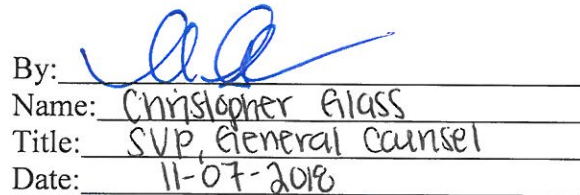 By:
Name: Christopher Glass
Title: SVP, General Counsel
Date: 11-07-2018